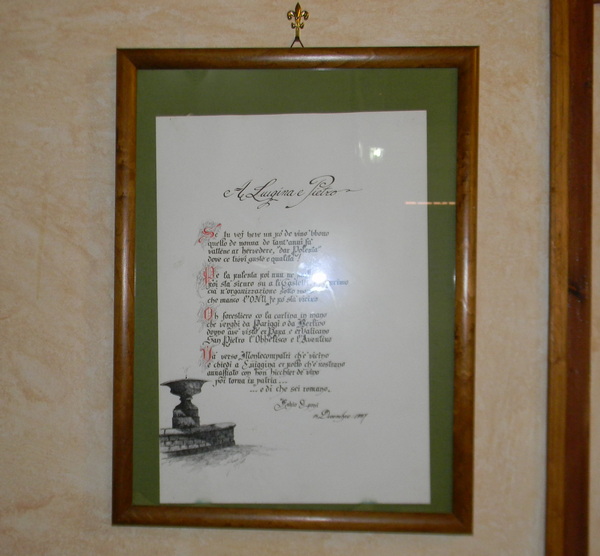 A Luigina e Pietro
Se tu voi bere un po' de vino bbono
quello de nonna de tant'anni fa
vattene ar bervedere, "dar
dove ce trovi gusto e qualità
Pe la pulenta poi nun
poi sta' sicuro
cià n'organizzazione
che manco l'ONU je po' sta' vicino
Ah forestiero co la cartina in mano
che venghi da Pariggi o da Berlino
doppo ave' visto er Papa e er Vaticano
San Pietro l'Obbelisco e
Va' verso Montecompatri ch'è vicino
e chiedi a Luiggina er pollo ch'è nostrano
annaffiato con bon bicchier de vino
poi torna in patria...
... e di che sei romano.